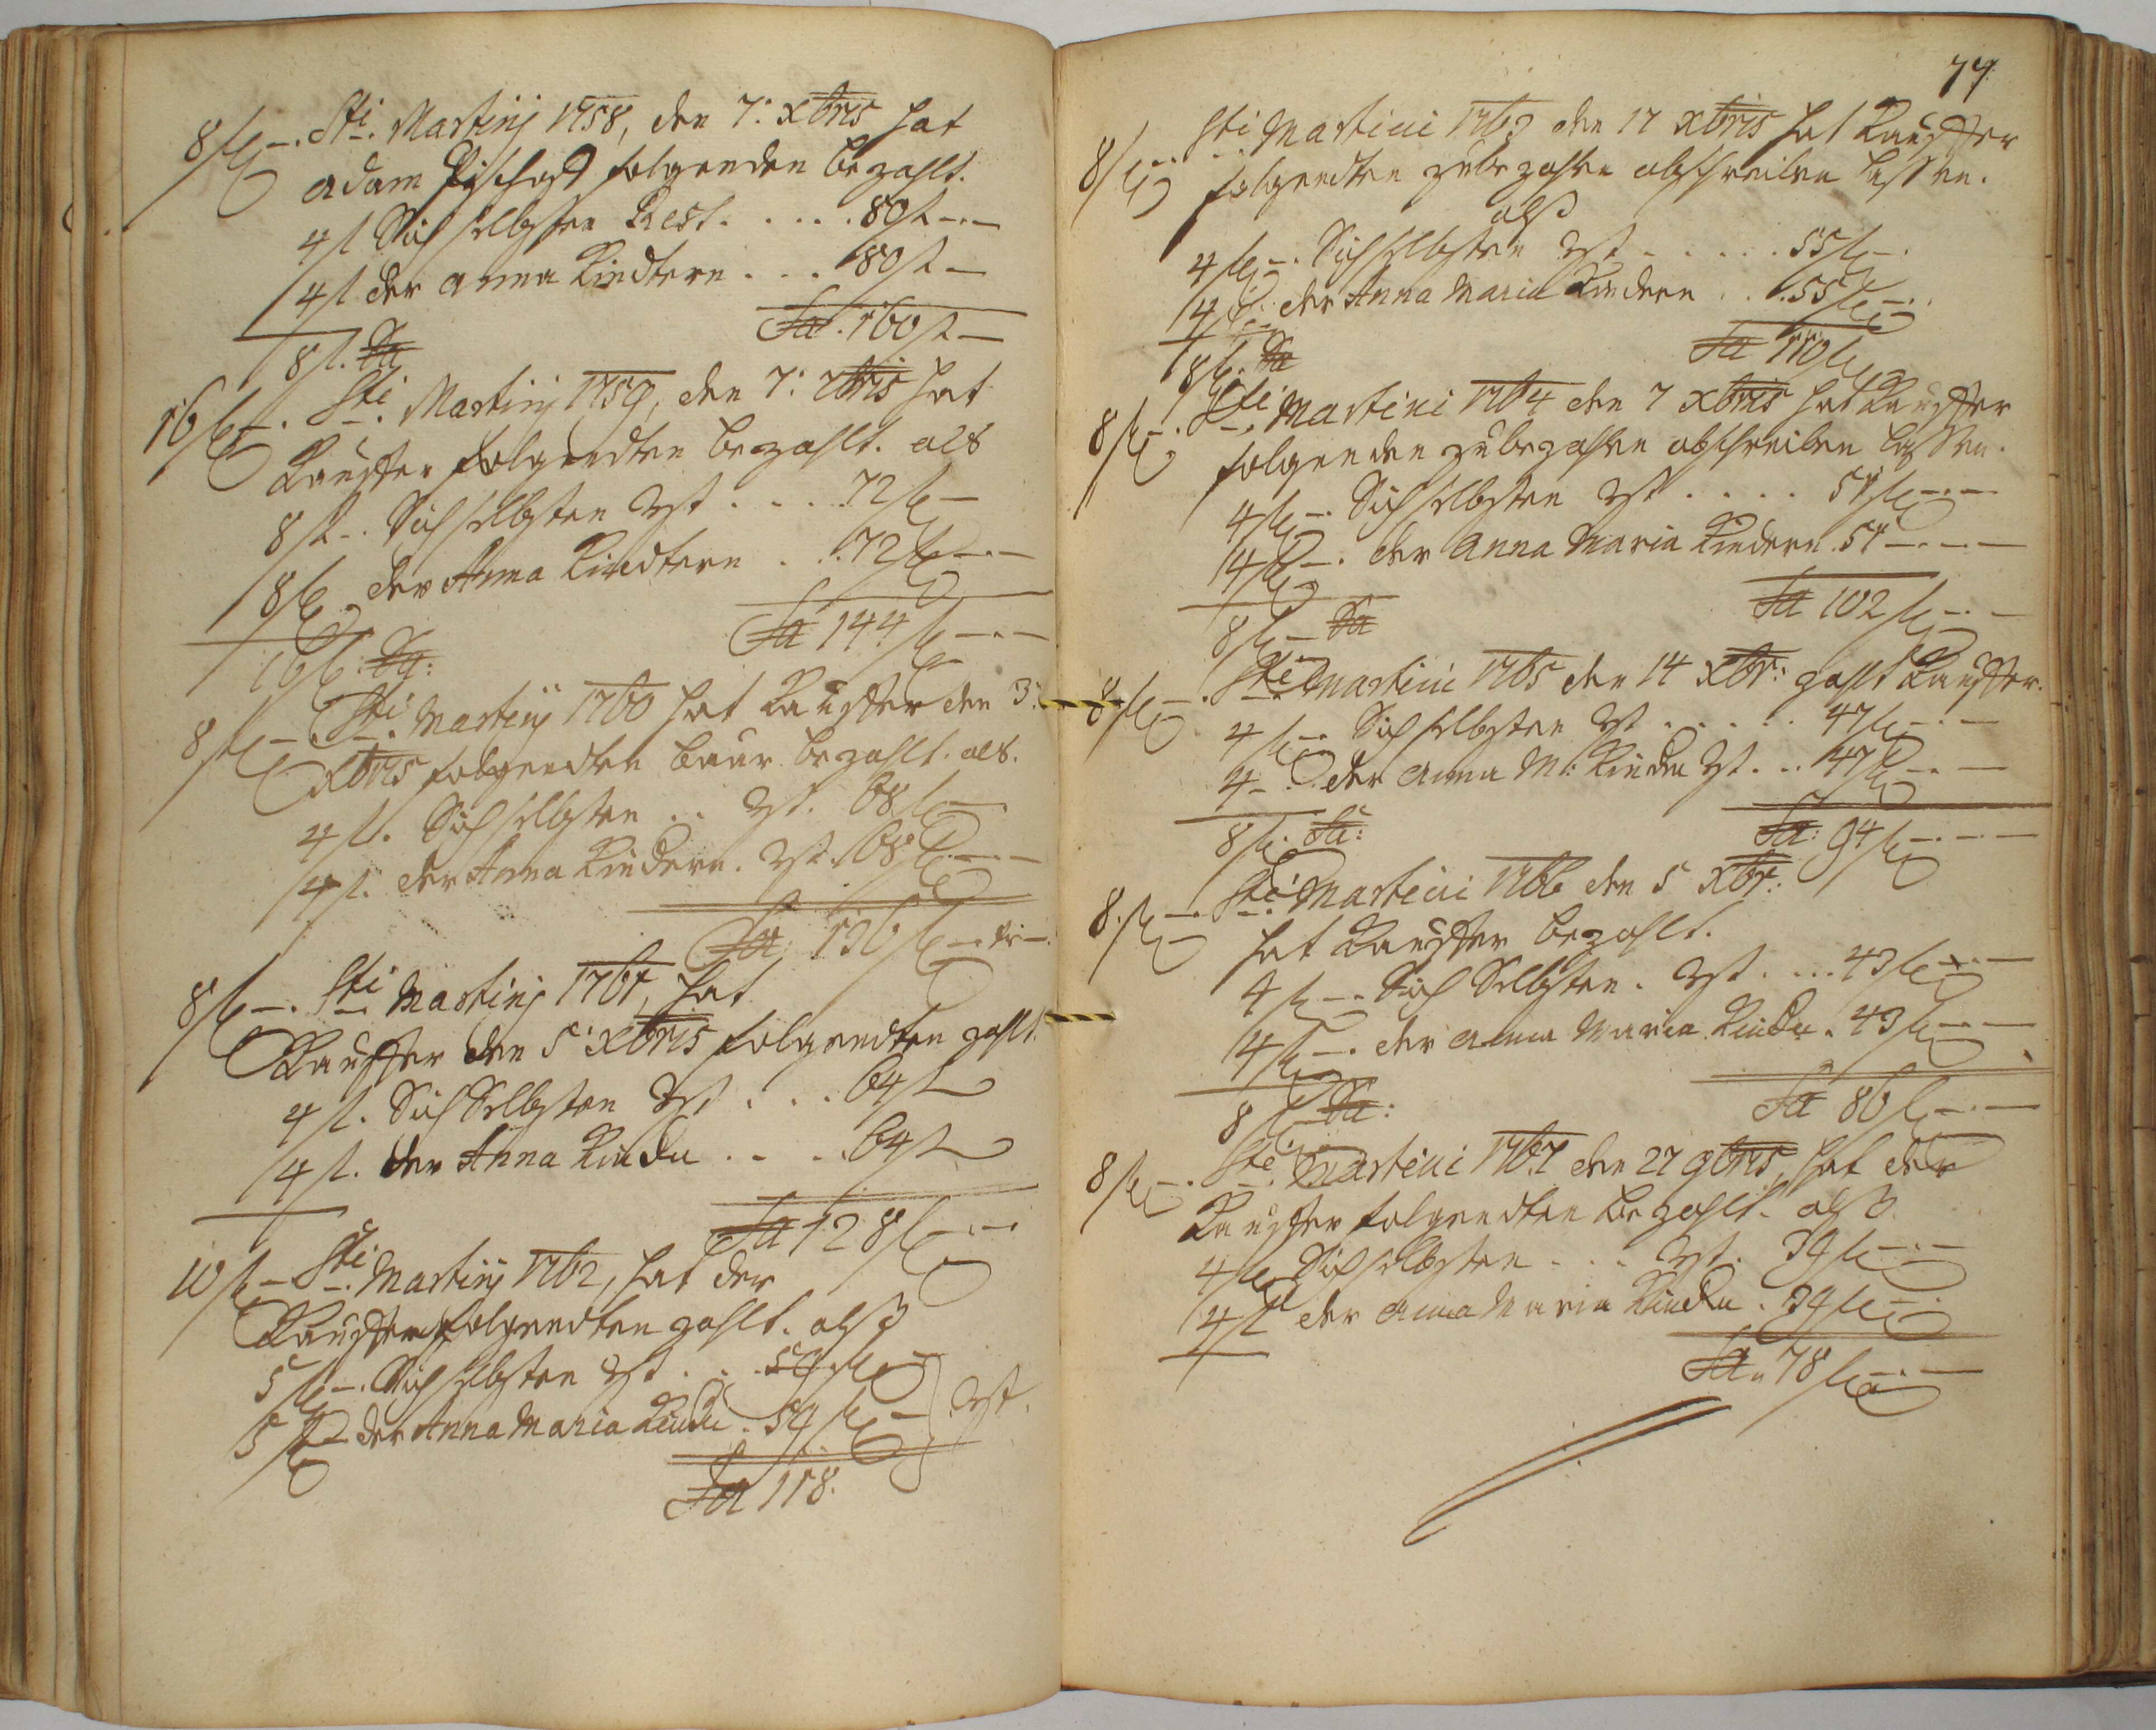 8 fl –. Sti. Martinj 1758, den 7: Xbris hat
Adam folgenden bezahlt.
4 fl Sich selbsten Rest . . . . . 80 fl –.–
4 fl der Anna Kindtern . . . 80 fl –
8 fl. Sa Sa. 160 fl –
16 fl –. Sti. Martinj 1759, den 7: Xbris hat
Kauffer folgendten bezahlt. als
8 fl –. Sich selbsten rst . . . . 72 fl –
8 fl. der Anna Kindtern . . . 72 fl –.–
16 fl. Sa: Sa 144 fl –.–
8 fl –. Sti. Martinj 1760 hat Kauffer den 3:
Xbris folgendten baar bezahlt. als.
4 fl. Sich selbsten . . rst. 68 fl –
4 fl. der Anna Kindern. rst. 68 fl –.–
Sa: 136 fl – kr –.
8 fl –. Sti Martinj 1761, hat
Kauffer den 5: Xbris folgendten zahlt.
4 fl. Sich Selbsten rst . . . 64 fl
4 fl. der Anna Kinder . . . 64 fl
Sa 128 fl –.–
10 fl – Sti. Martinj 1762, hat der
Kauffer folgendten zahlt. alß
5 fl –. Sich selbsten rst . . . 59 fl –
5 fl – der Anna Maria Kinder . 59 fl – rst.
Sa 118.
77
Sti Martini 1763 den 17 Xbris hat Kauffer
8 fl –. folgendten zu bezahlen abschreiben lassen.
alß
4 fl –. Sich selbsten rst . . . . . . 55 fl –.
4 fl –. der Anna Maria Kindern . . . 55 fl –.
8 fl. Sa Sa 110 fl
8 fl –. Sti Martini 1764 den 7 Xbris hat Kauffer
folgenden zu bezahlen abschreiben lassen.
4 fl –. Sich selbsten rst . . . . 51 fl –.–
4 fl –. der Anna Maria Kindern. 51 –.–.–
8 fl – Sa Sa 102 fl –.–
8 fl –. Sti Martini 1765 den 14 Xbr: zahlt Kauffer.
4 fl –. Sich selbsten rst . . . . . 47 fl –.–
4 –. der Anna M: Kinder rst . . 47 fl –.–
8 fl. Sa: Sa: 94 fl –.–.–
8 fl –. Sti Martini 1766 den 5 Xbr:
hat Kauffer bezahlt.
4 fl –. Sich Selbsten . rst . . . . 43 fl –.–
4 fl –. der Anna Maria Kinder . 43 fl –.–
8 fl Sa: Sa 86 fl –.–
8 fl –. Sti. Martini 1767 den 27 9bris, hat der
Kauffer folgendten bezahlt. alß
4 fl. Sich selbsten . . . rst. 39 fl –.–
4 fl der Anna Maria Kinder . 39 fl –.
Sa. 78 fl –.–